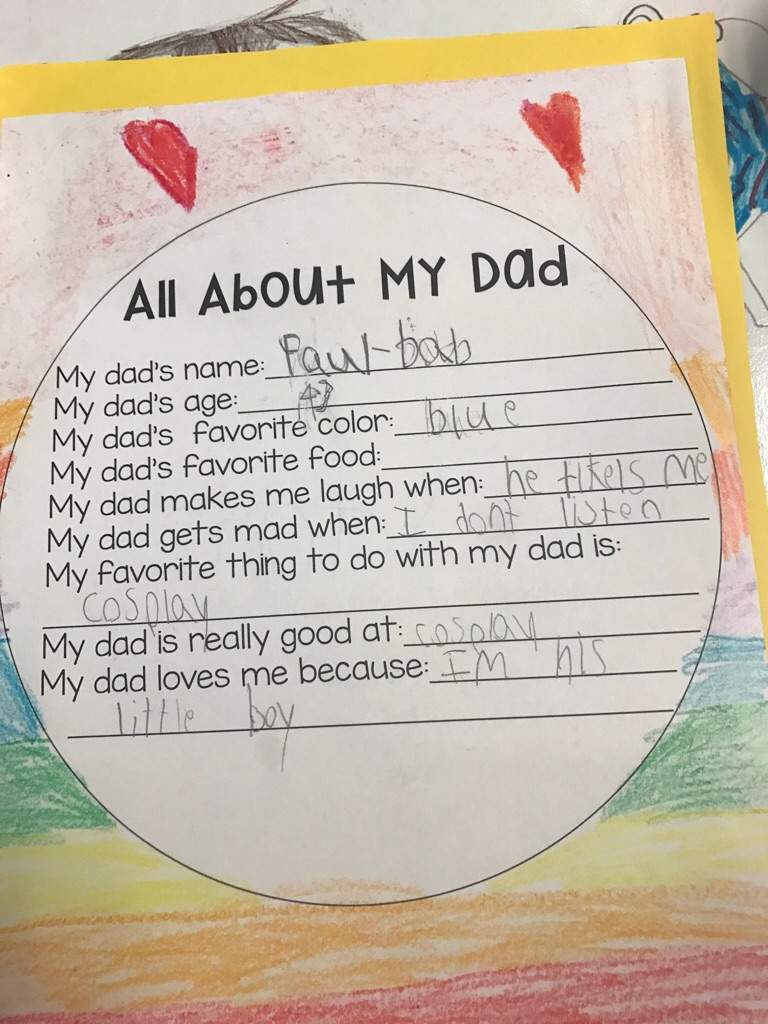 All About My Dad
My dad's name: Paul-bob
My dad's age: 43
My dad's favorite color: blue
My dad's favorite food:
My dad makes me laugh when: he tikels me
My dad gets mad when: I dont listen
My favorite thing to do with my dad is:
cosplay
My dad is really good at: cosplay
My dad loves me because: IM his
little boy